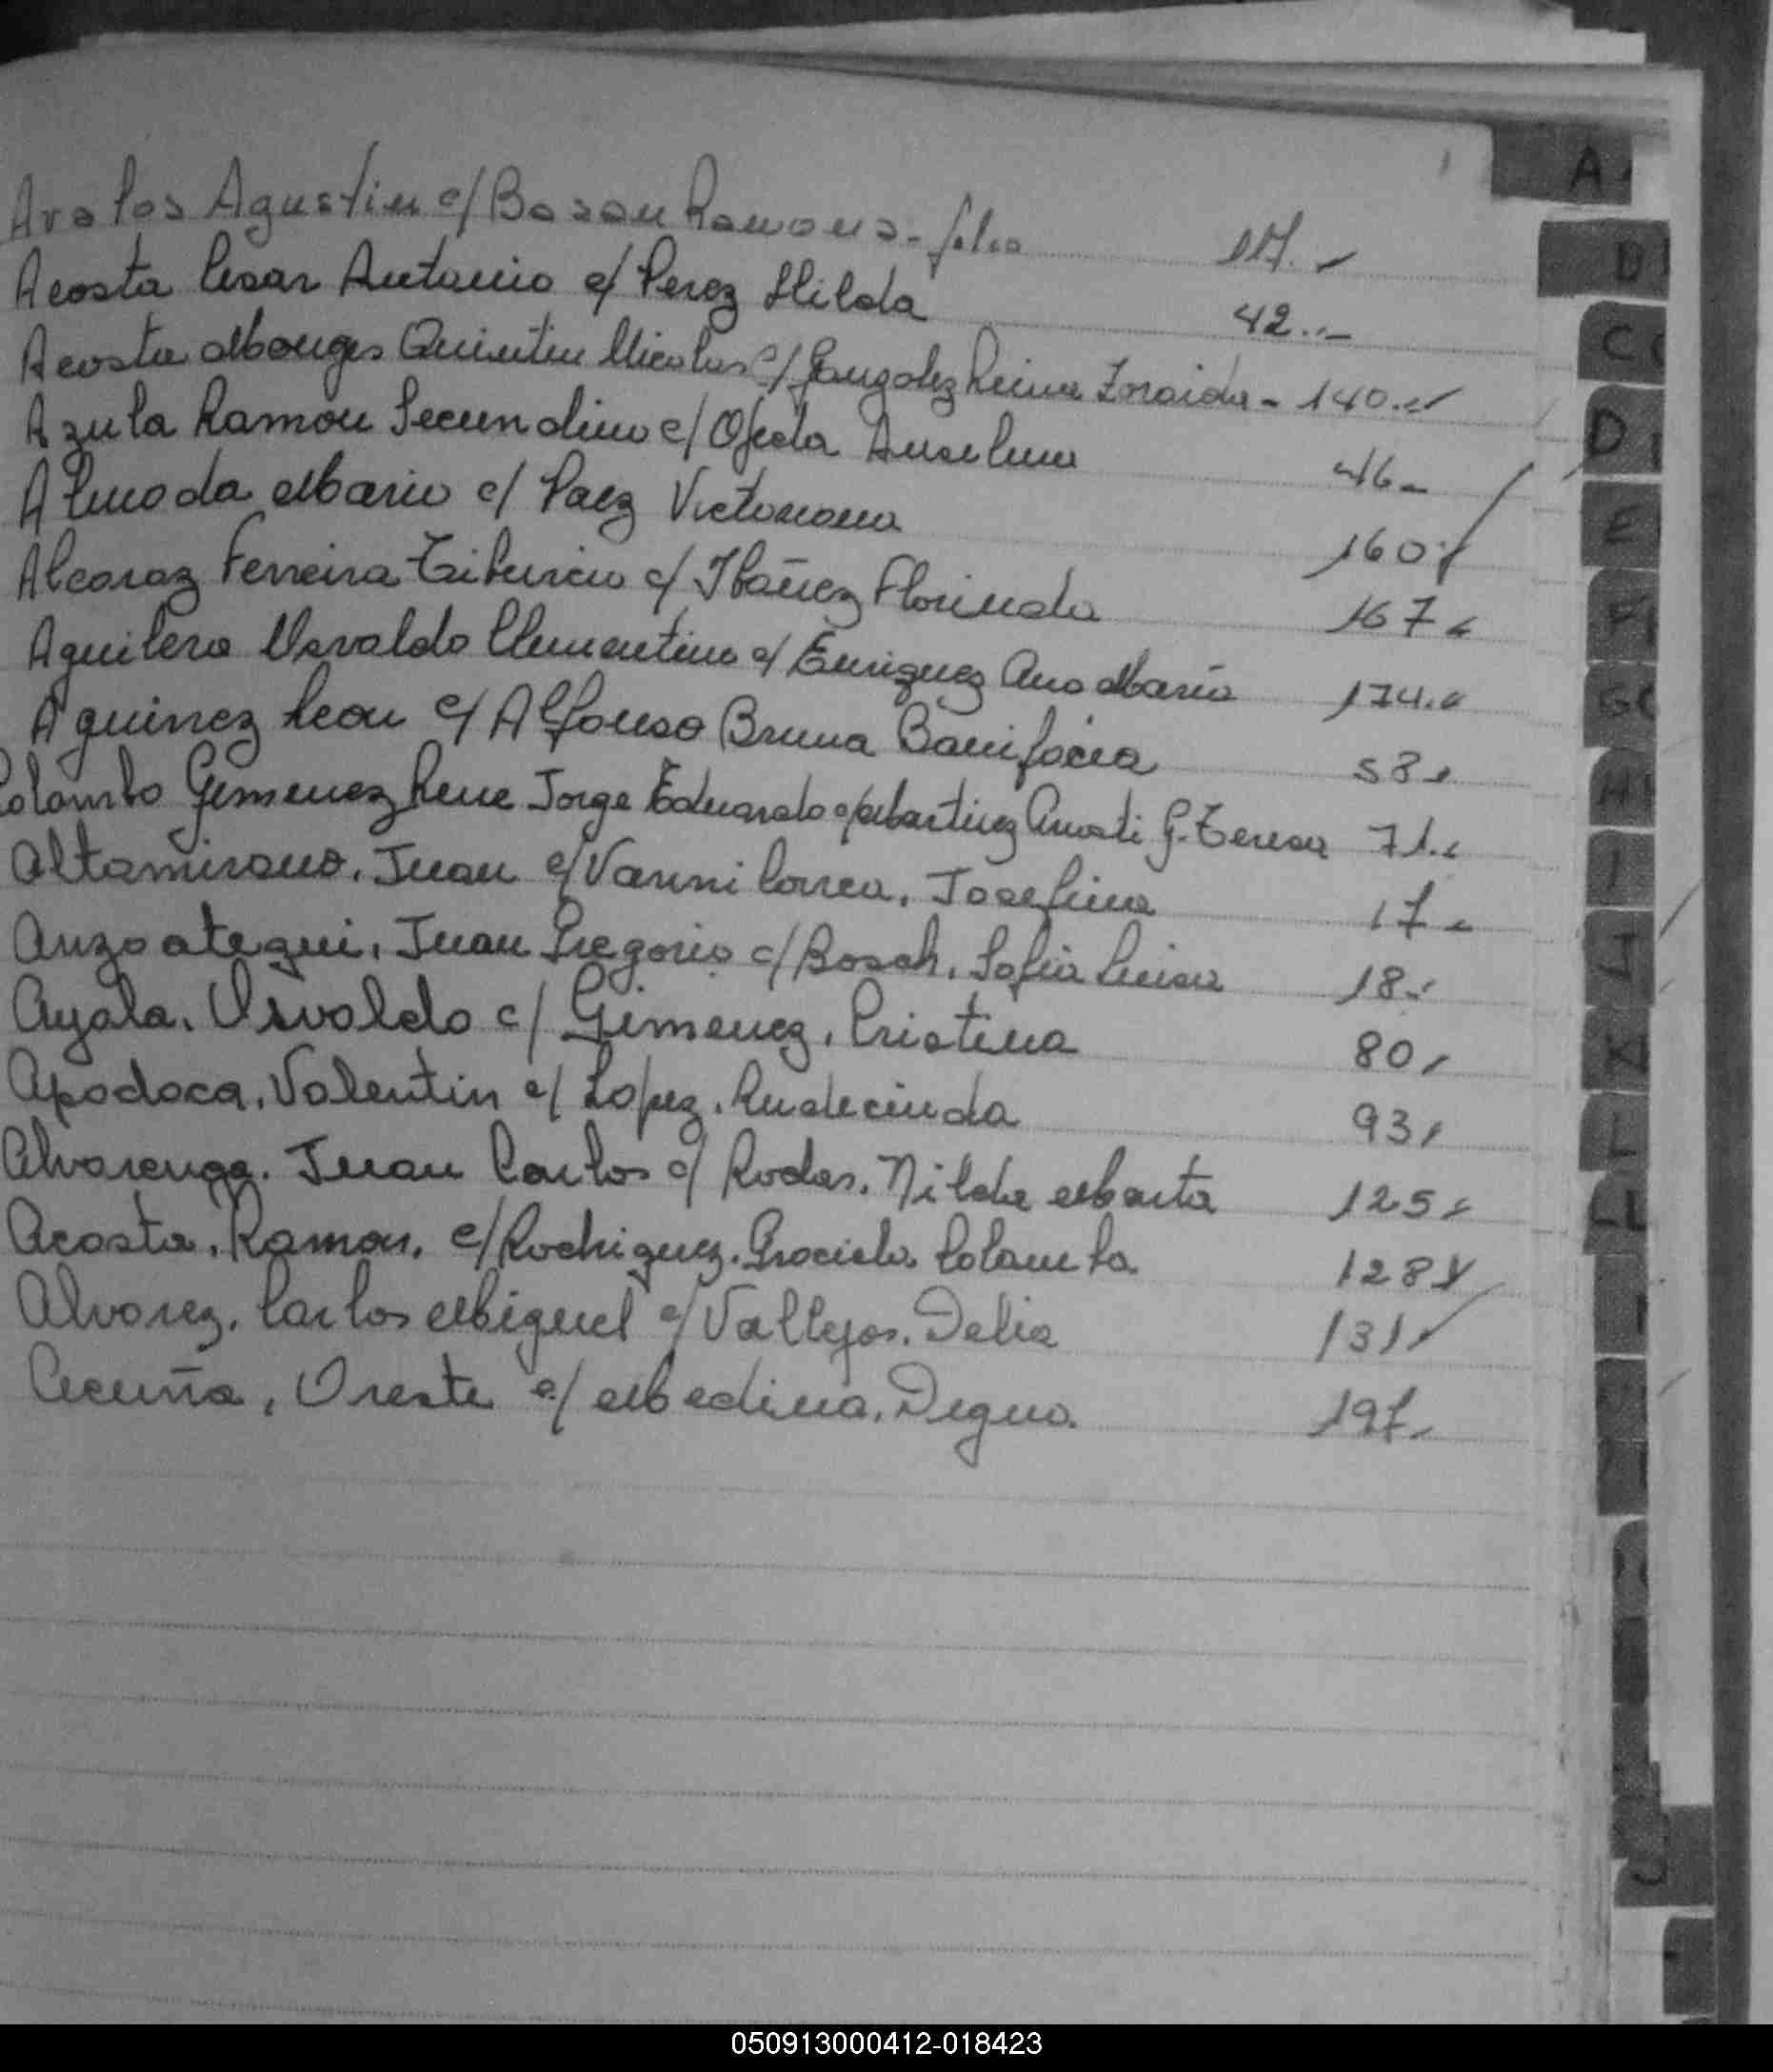 Avalos Agustin c/ Bazan Ramona - folio 117.
Acosta Cesar Antonio c/ Perez Hilda 42
Acosta Monges Quintin Nicolas c/ Gonzalez Reina Zoraida - 140
Azula Ramon Secundino c/ Ojeda Anselma 46
Almada Mario c/ Paez Victoriana 160
Alcaraz Ferreira Tiburcio c/ Ibañez Florinda 167
Aguilera Osvaldo Clementino c/ Enriquez Ana Maria 174
Aguirrez Leon c/ Alfonso Bruna Bonifacia 58
Colombo Gimenez Rene Jorge Eduardo c/ Martinez G. Teresa 71
Altamirano, Juan c/ Vanni Correa, Josefina 17
Anzoategui, Juan Gregorio c/ Bosch, Sofia Luisa 18
Ayala, Osvaldo c/ Gimenez, Cristina 80
Apodaca, Valentin c/ Lopez, Rudecinda 93
Alvarenga, Juan Carlos c/ Rodas, Nilda Marta 125
Acosta, Ramon, c/ Rodriguez, Graciela 128
Alvarez, Carlos Miguel c/ Vallejos, Delia 131
Acuña, Oreste c/ Medina, Digna. 197
A
C
D
E
F
G
H
I
J
K
L
LL
050913000412-018423